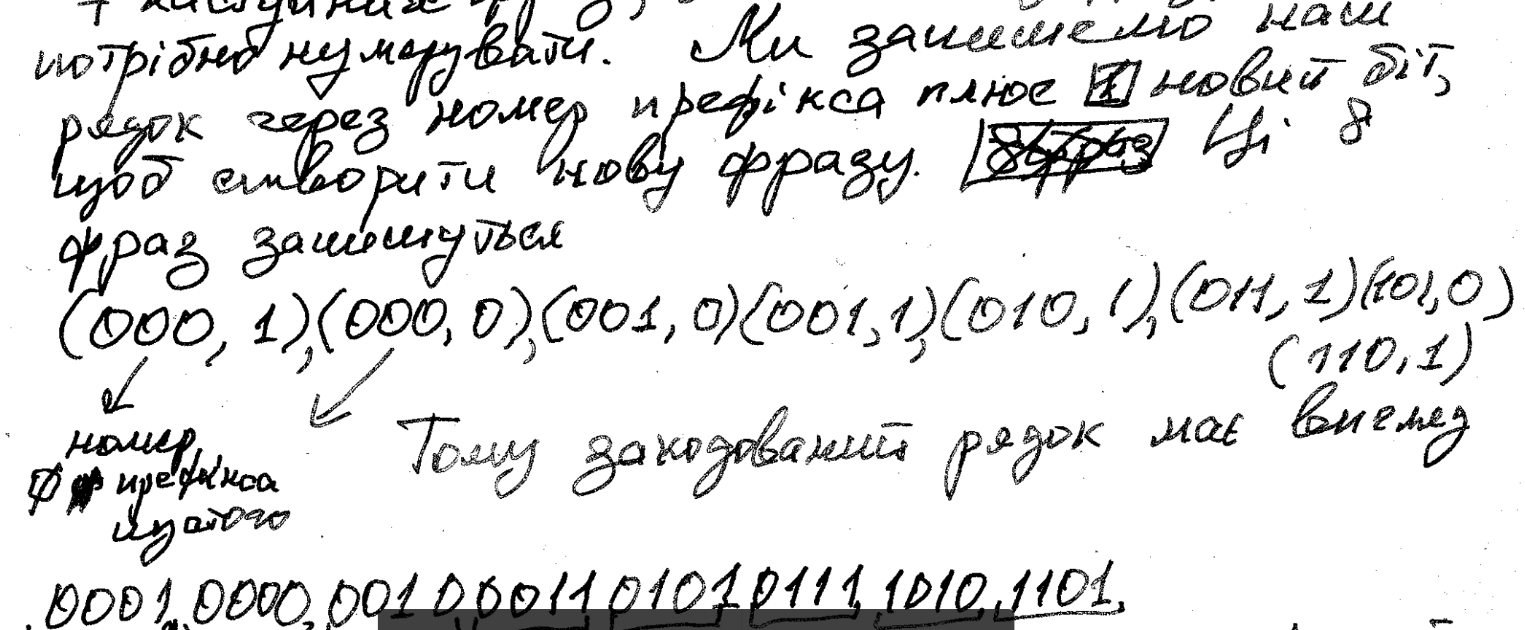 потрібно нумерувати. Ми запишемо наш
рядок через номер префікса плюс 1 новий біт,
щоб створити нову фразу. Ці 8
фраз запишуться
(000, 1), (000, 0), (001, 0) (001, 1), (010, 1), (011, 1) (101, 0)
(110, 1)
номер
префікса
пустого
Тому закодований рядок має вигляд
0001, 0000, 0010 0011 0101 0111, 1010, 1101,